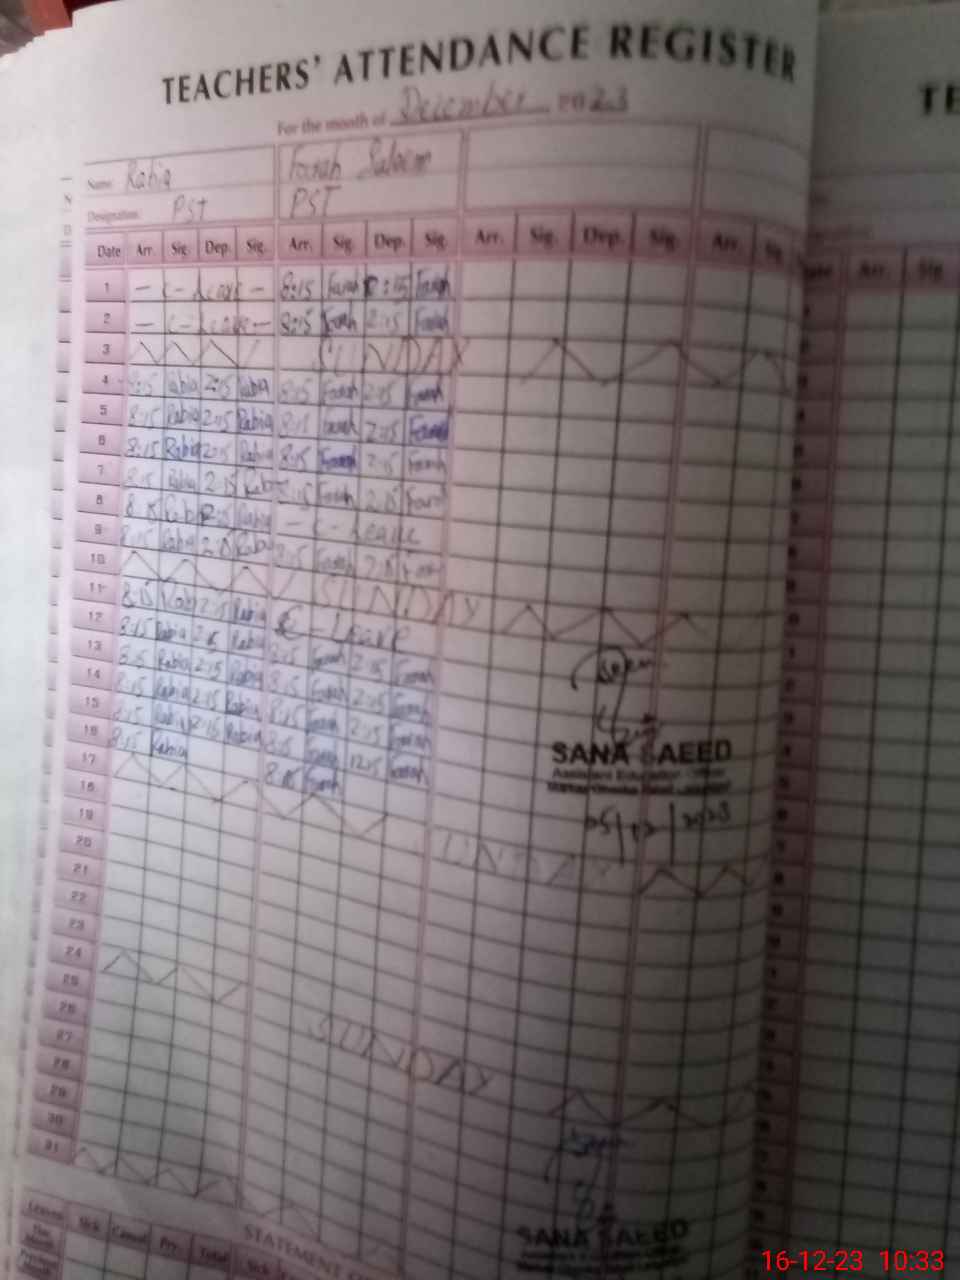 TEACHERS' ATTENDANCE REGISTER
TE
For the month of December 2023
Name: Rabia Farah Saleem
Designation: PST PST
Date Arr. Sig. Dep. Sig. Arr. Sig. Dep. Sig. Arr. Sig. Dep. Sig. Arr. Sig.
Arr. Sig.
1 – C – Leave – 8:15 Farah 2:15 Farah
2 – C – Leave – 8:15 Farah 2:15 Farah
3 SUNDAY
4 8:15 Rabia 2:15 Rabia 8:15 Farah 2:15 Farah
5 8:15 Rabia 2:15 Rabia 8:15 Farah 2:15 Farah
6 8:15 Rabia 2:15 Rabia 8:15 Farah 2:15 Farah
7 8:15 Rabia 2:15 Rabia 8:15 Farah 2:15 Farah
8 8:15 Rabia 2:15 Rabia – C – Leave
9 8:15 Rabia 2:15 Rabia 8:15 Farah 2:15 Farah
10 SUNDAY
11 8:15 Rabia 2:15 Rabia C – Leave
12 8:15 Rabia 2:15 Rabia 8:15 Farah 2:15 Farah
13 8:15 Rabia 2:15 Rabia 8:15 Farah 2:15 Farah
14 8:15 Rabia 2:15 Rabia 8:15 Farah 2:15 Farah
15 8:15 Rabia 12:15 Rabia 8:15 Farah 12:15 Farah
16 8:15 Rabia 8:15 Farah
17 SUNDAY
18
19
20
21
22
23
24 SUNDAY
25
26
27
28
29
30
31
SANA SAEED
Assistant Education Officer
05/12/2023
SANA SAEED
Leaves Sick Casual Prv. Total Sick
STATEMENT
16-12-23 10:33